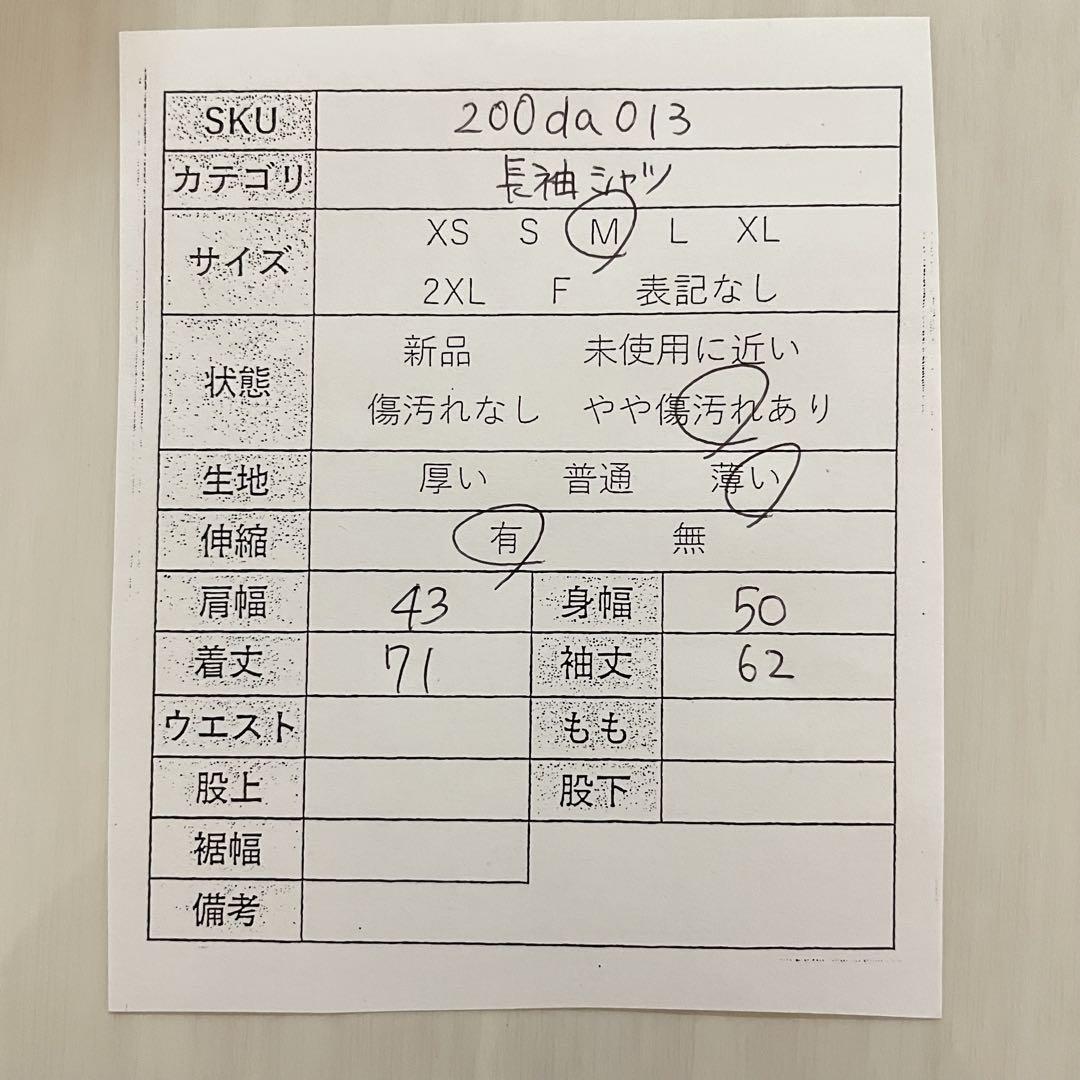 SKU 200da013
カテゴリ 長袖シャツ
サイズ XS S M L XL
2XL F 表記なし
状態 新品 未使用に近い
傷汚れなし やや傷汚れあり
生地 厚い 普通 薄い
伸縮 有 無
肩幅 43 身幅 50
着丈 71 袖丈 62
ウエスト もも
股上 股下
裾幅
備考